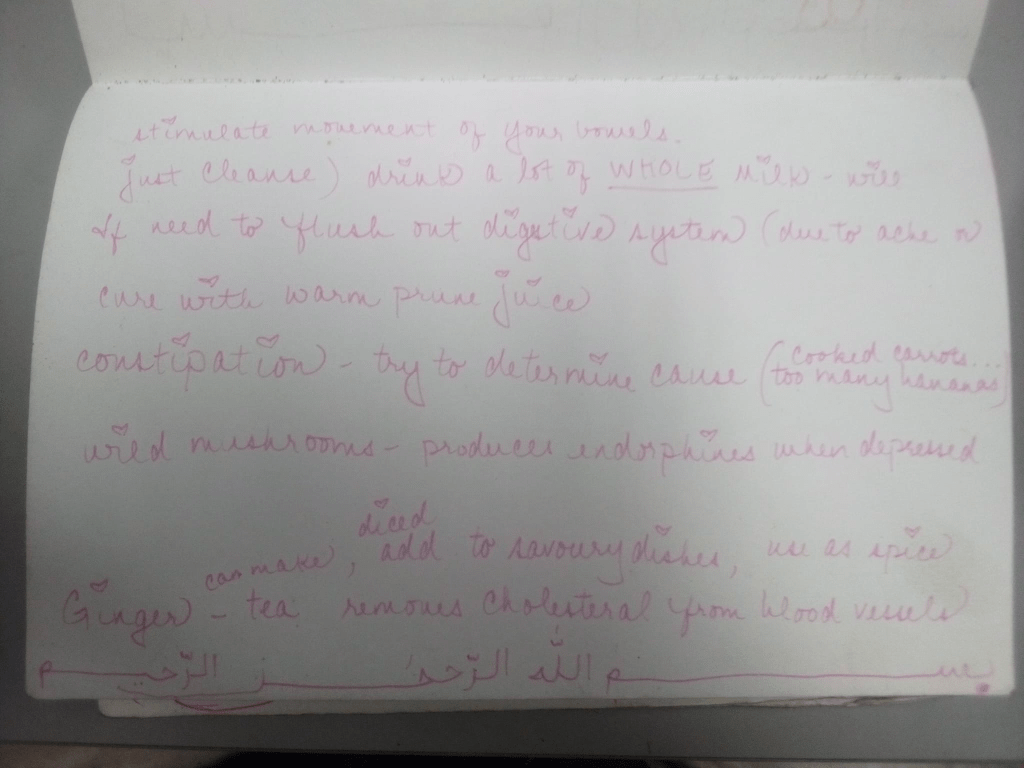 stimulate movement of your bowels.
just cleanse) drink a lot of WHOLE milk - will
If need to flush out digestive system (due to ache or
cure with warm prune juice
constipation - try to determine cause (cooked carrots...
too many bananas)
wild mushrooms - produces endorphines when depressed
diced
can make, add to savoury dishes, use as spice
Ginger - tea removes cholesteral from blood vessels
بسم الله الرّحمٰن الرّحيم